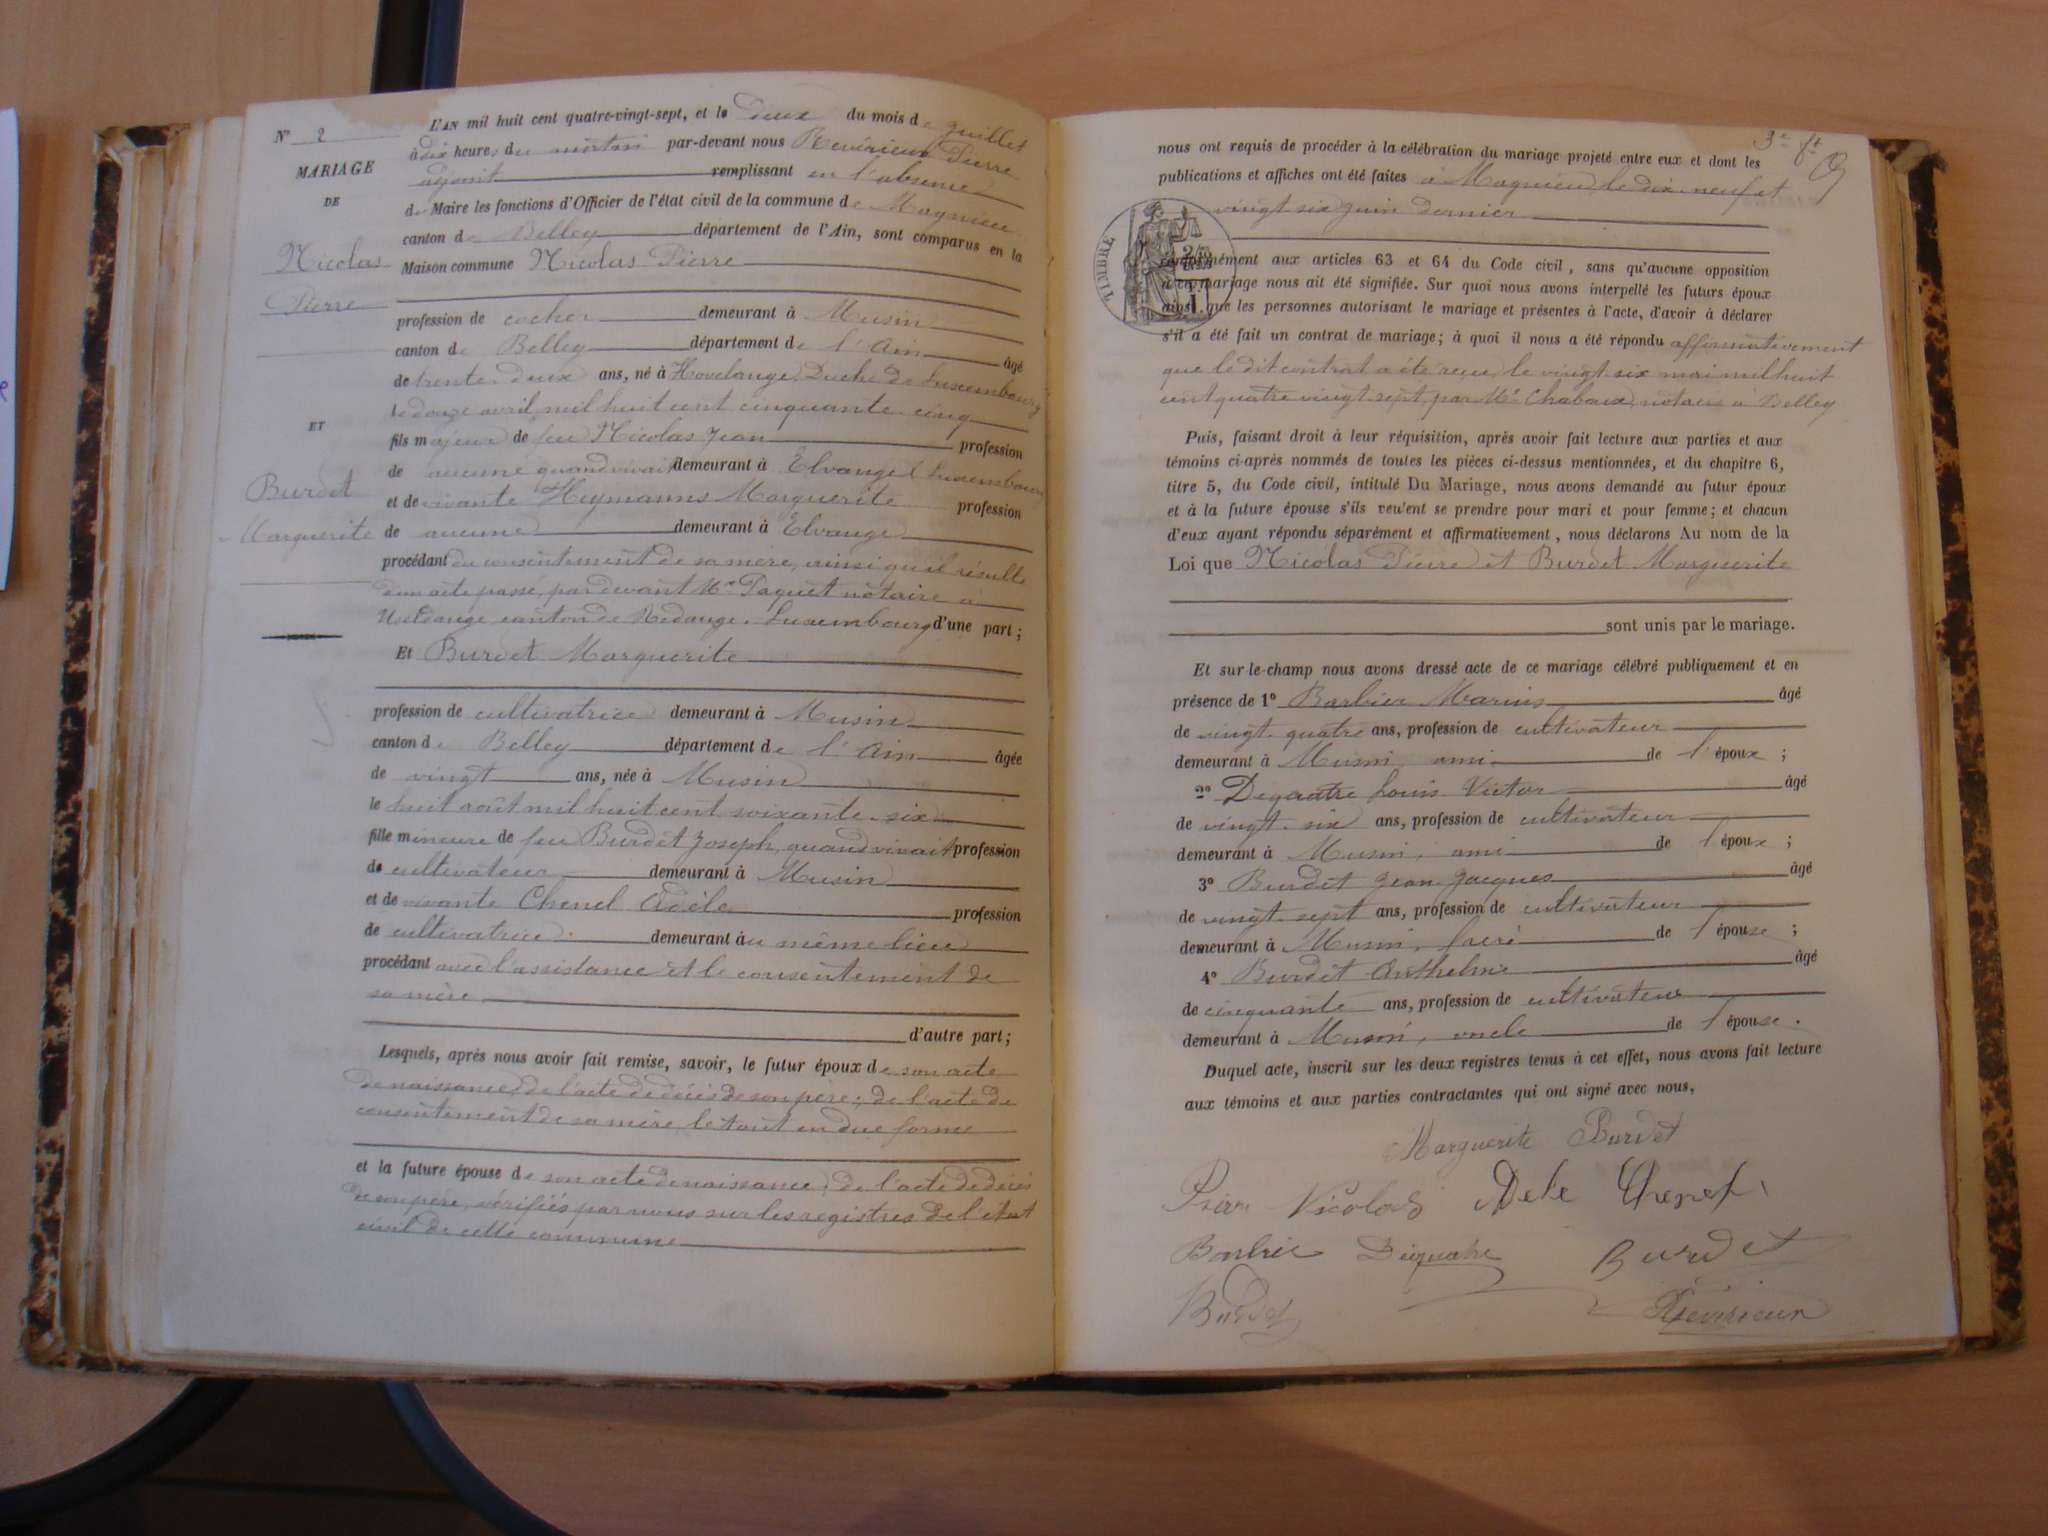 N° 2
MARIAGE
DE
Nicolas
Pierre
ET
Burdet
Marguerite
L'AN mil huit cent quatre-vingt-sept, et le deux du mois de juillet
à dix heures du matin par-devant nous Revérieux Pierre
adjoint remplissant en l'absence
de Maire les fonctions d'Officier de l'état civil de la commune de Magnieu
canton de Belley département de l'Ain, sont comparus en la
Maison commune Nicolas Pierre
profession de cocher demeurant à Musin
canton de Belley département de l'Ain âgé
de trente deux ans, né à Hovelange, Duché de Luxembourg
le douze avril mil huit cent cinquante-cinq
fils majeur de feu Nicolas Jean profession
de aucune quand vivait demeurant à Elvange (Luxembourg
et de vivante Heymanns Marguerite profession
de aucune demeurant à Elvange
procédant du consentement de sa mère, ainsi qu'il résulte
d'un acte passé, par devant Me Paquet notaire à
Useldange, canton de Redange, Luxembourg d'une part ;
Et Burdet Marguerite
profession de cultivatrice demeurant à Musin
canton de Belley département de l'Ain âgée
de vingt ans, née à Musin
le huit août mil huit cent soixante-six
fille mineure de feu Burdet Joseph, quand vivait profession
de cultivateur demeurant à Musin
et de vivante Chenel Adèle profession
de cultivatrice demeurant au même lieu
procédant avec l'assistance et le consentement de
sa mère
d'autre part ;
Lesquels, après nous avoir fait remise, savoir, le futur époux de son acte
de naissance, de l'acte de décès de son père ; de l'acte de
consentement de sa mère, le tout en due forme
et la future épouse de son acte de naissance ; de l'acte de décès
de son père, vérifiés par nous sur les registres de l'état
civil de cette commune
3e ft
nous ont requis de procéder à la célébration du mariage projeté entre eux et dont les
publications et affiches ont été faites à Magnieu le dix-neuf et
vingt six juin dernier
TIMBRE
conformément aux articles 63 et 64 du Code civil, sans qu'aucune opposition
à ce mariage nous ait été signifiée. Sur quoi nous avons interpellé les futurs époux
ainsi que les personnes autorisant le mariage et présentes à l'acte, d'avoir à déclarer
s'il a été fait un contrat de mariage ; à quoi il nous a été répondu affirmativement
que le dit contrat a été reçu, le vingt six mai mil huit
cent quatre vingt sept, par Me Chaboux, notaire à Belley
Puis, faisant droit à leur réquisition, après avoir fait lecture aux parties et aux
témoins ci-après nommés de toutes les pièces ci-dessus mentionnées, et du chapitre 6,
titre 5, du Code civil, intitulé Du Mariage, nous avons demandé au futur époux
et à la future épouse s'ils veu'ent se prendre pour mari et pour femme ; et chacun
d'eux ayant répondu séparément et affirmativement, nous déclarons Au nom de la
Loi que Nicolas Pierre et Burdet Marguerite
sont unis par le mariage.
Et sur-le-champ nous avons dressé acte de ce mariage célébré publiquement et en
présence de 1° Barbier Marius âgé
de vingt-quatre ans, profession de cultivateur
demeurant à Musin, ami de l'époux ;
2° Dequatre Louis Victor âgé
de vingt-six ans, profession de cultivateur
demeurant à Musin, ami de l'époux ;
3° Burdet Jean Jacques âgé
de vingt-sept ans, profession de cultivateur
demeurant à Musin, frère de l'épouse ;
4° Burdet Anthelme âgé
de cinquante ans, profession de cultivateur
demeurant à Musin, oncle de l'épouse.
Duquel acte, inscrit sur les deux registres tenus à cet effet, nous avons fait lecture
aux témoins et aux parties contractantes qui ont signé avec nous,
Marguerite Burdet
Pierre Nicolas Dele Chenel
Barbier Dequatre Burdet
Burdet Revérieux